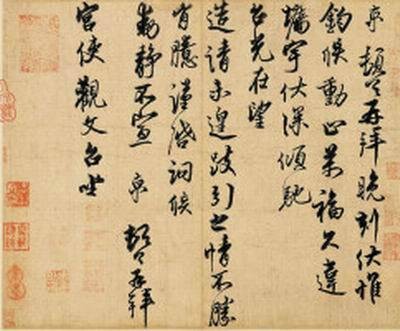 京 頓首再拜晚刻伏惟
鈞候動止萬福久違
牆宇伏深傾馳
台光在望
造請未遑跂引之情不勝
有臆謹啓詢候
動靜不宣 京 頓首再拜
宮使觀文台坐